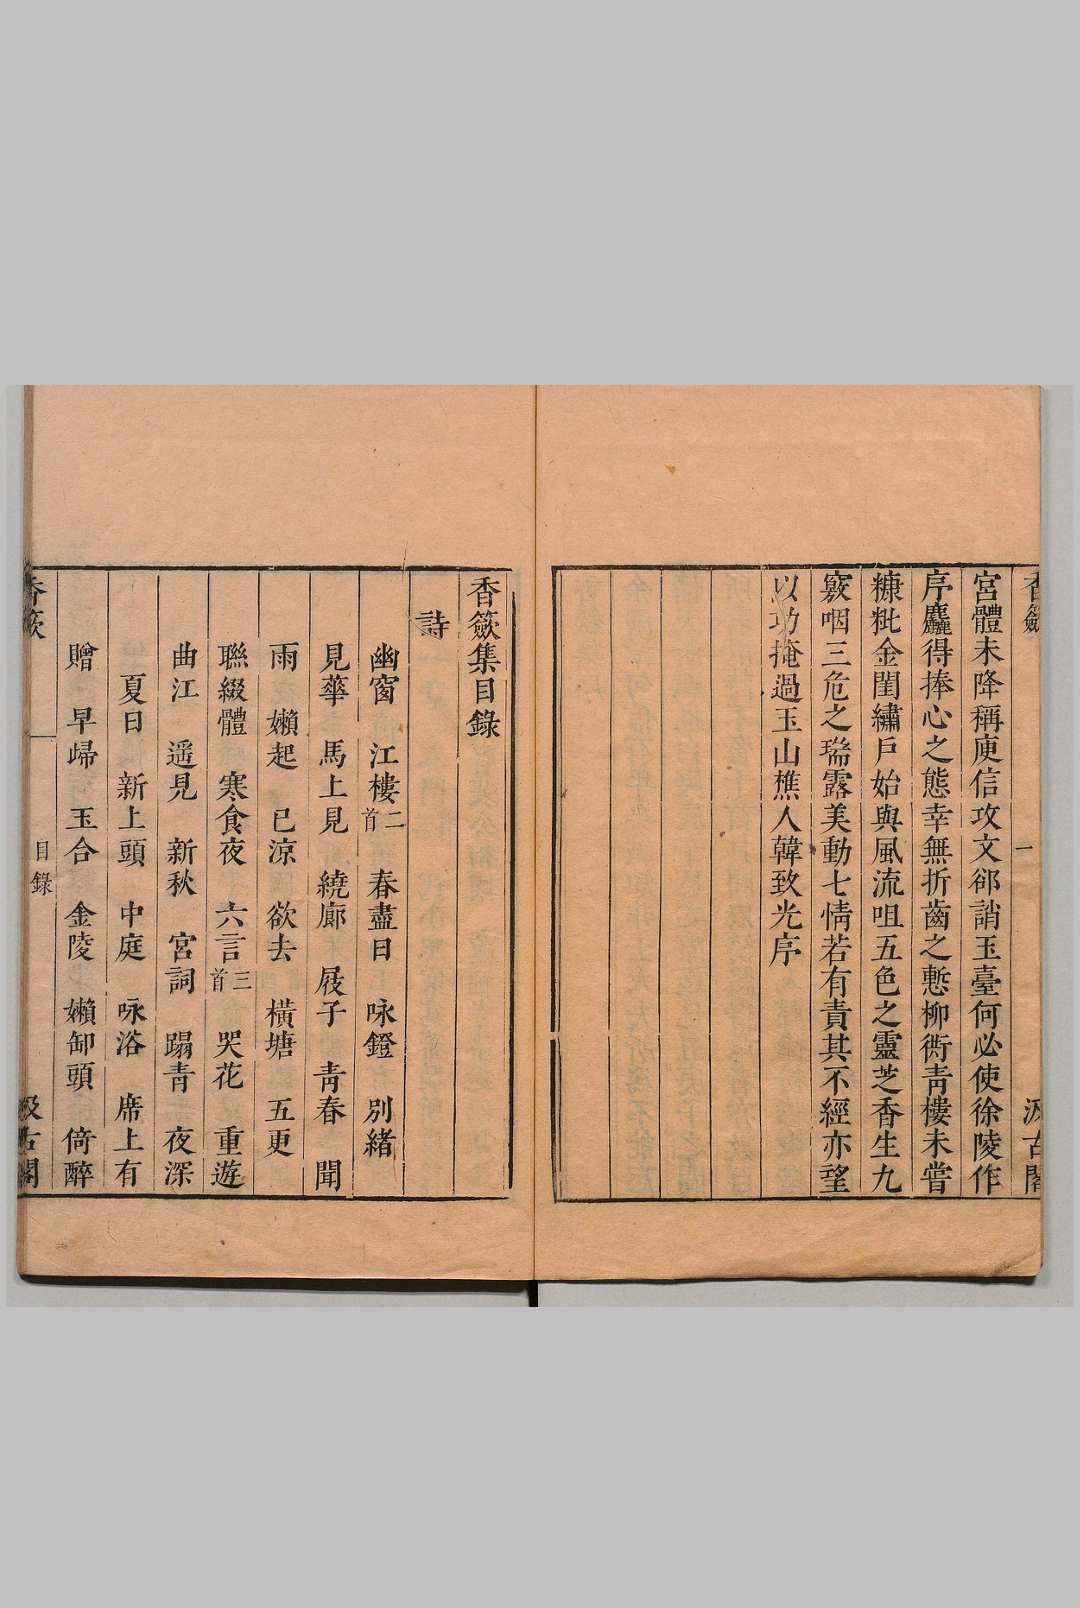 香籢
一
汲古閣
宮體未降稱庾信攻文郤誚玉臺何必使徐陵作
序麤得捧心之態幸無折齒之慙柳衖青樓未嘗
糠粃金閨繡戶始與風流咀五色之靈芝香生九
竅咽三危之瑞露美動七情若有責其不經亦望
以功掩過玉山樵人韓致光序
香籢集目錄
詩
幽窗 江樓二首 春盡日 咏鐙 別緒
見蕐 馬上見 繞廊 屐子 青春 聞
雨 嬾起 已涼 欲去 橫塘 五更
聯綴體 寒食夜 六言三首 哭花 重遊
曲江 遥見 新秋 宮詞 蹋青 夜深
夏日 新上頭 中庭 咏浴 席上有
贈 早歸 玉合 金陵 嬾卸頭 倚醉
香籢
一
目錄
汲古閣